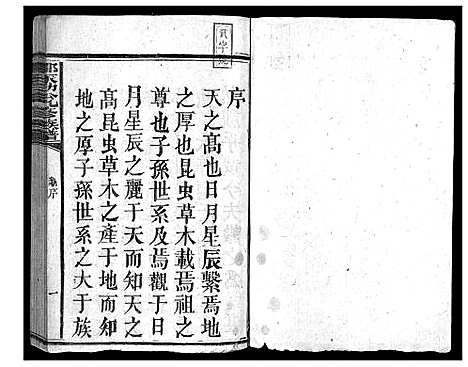 序
天之高也日月星辰繫焉地
之厚也昆虫草木載焉祖之
尊也子孫世系及焉觀于日
月星辰之麗于天而知天之
髙昆虫草木之產于地而知
地之厚子孫世系之大于族
序
一